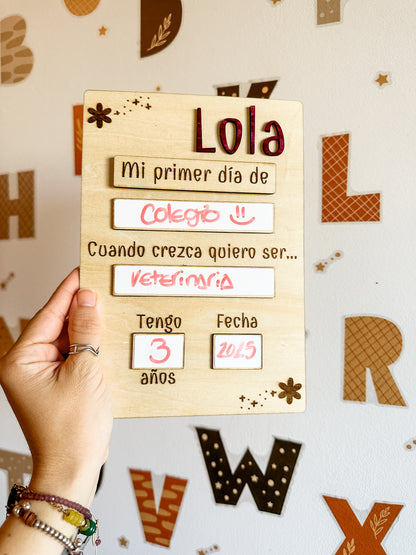 Lola
Mi primer día de
Colegio =)
Cuando crezca quiero ser...
veterinaria
Tengo
Fecha
3
2025
años
B
H
L
R
V
W
X